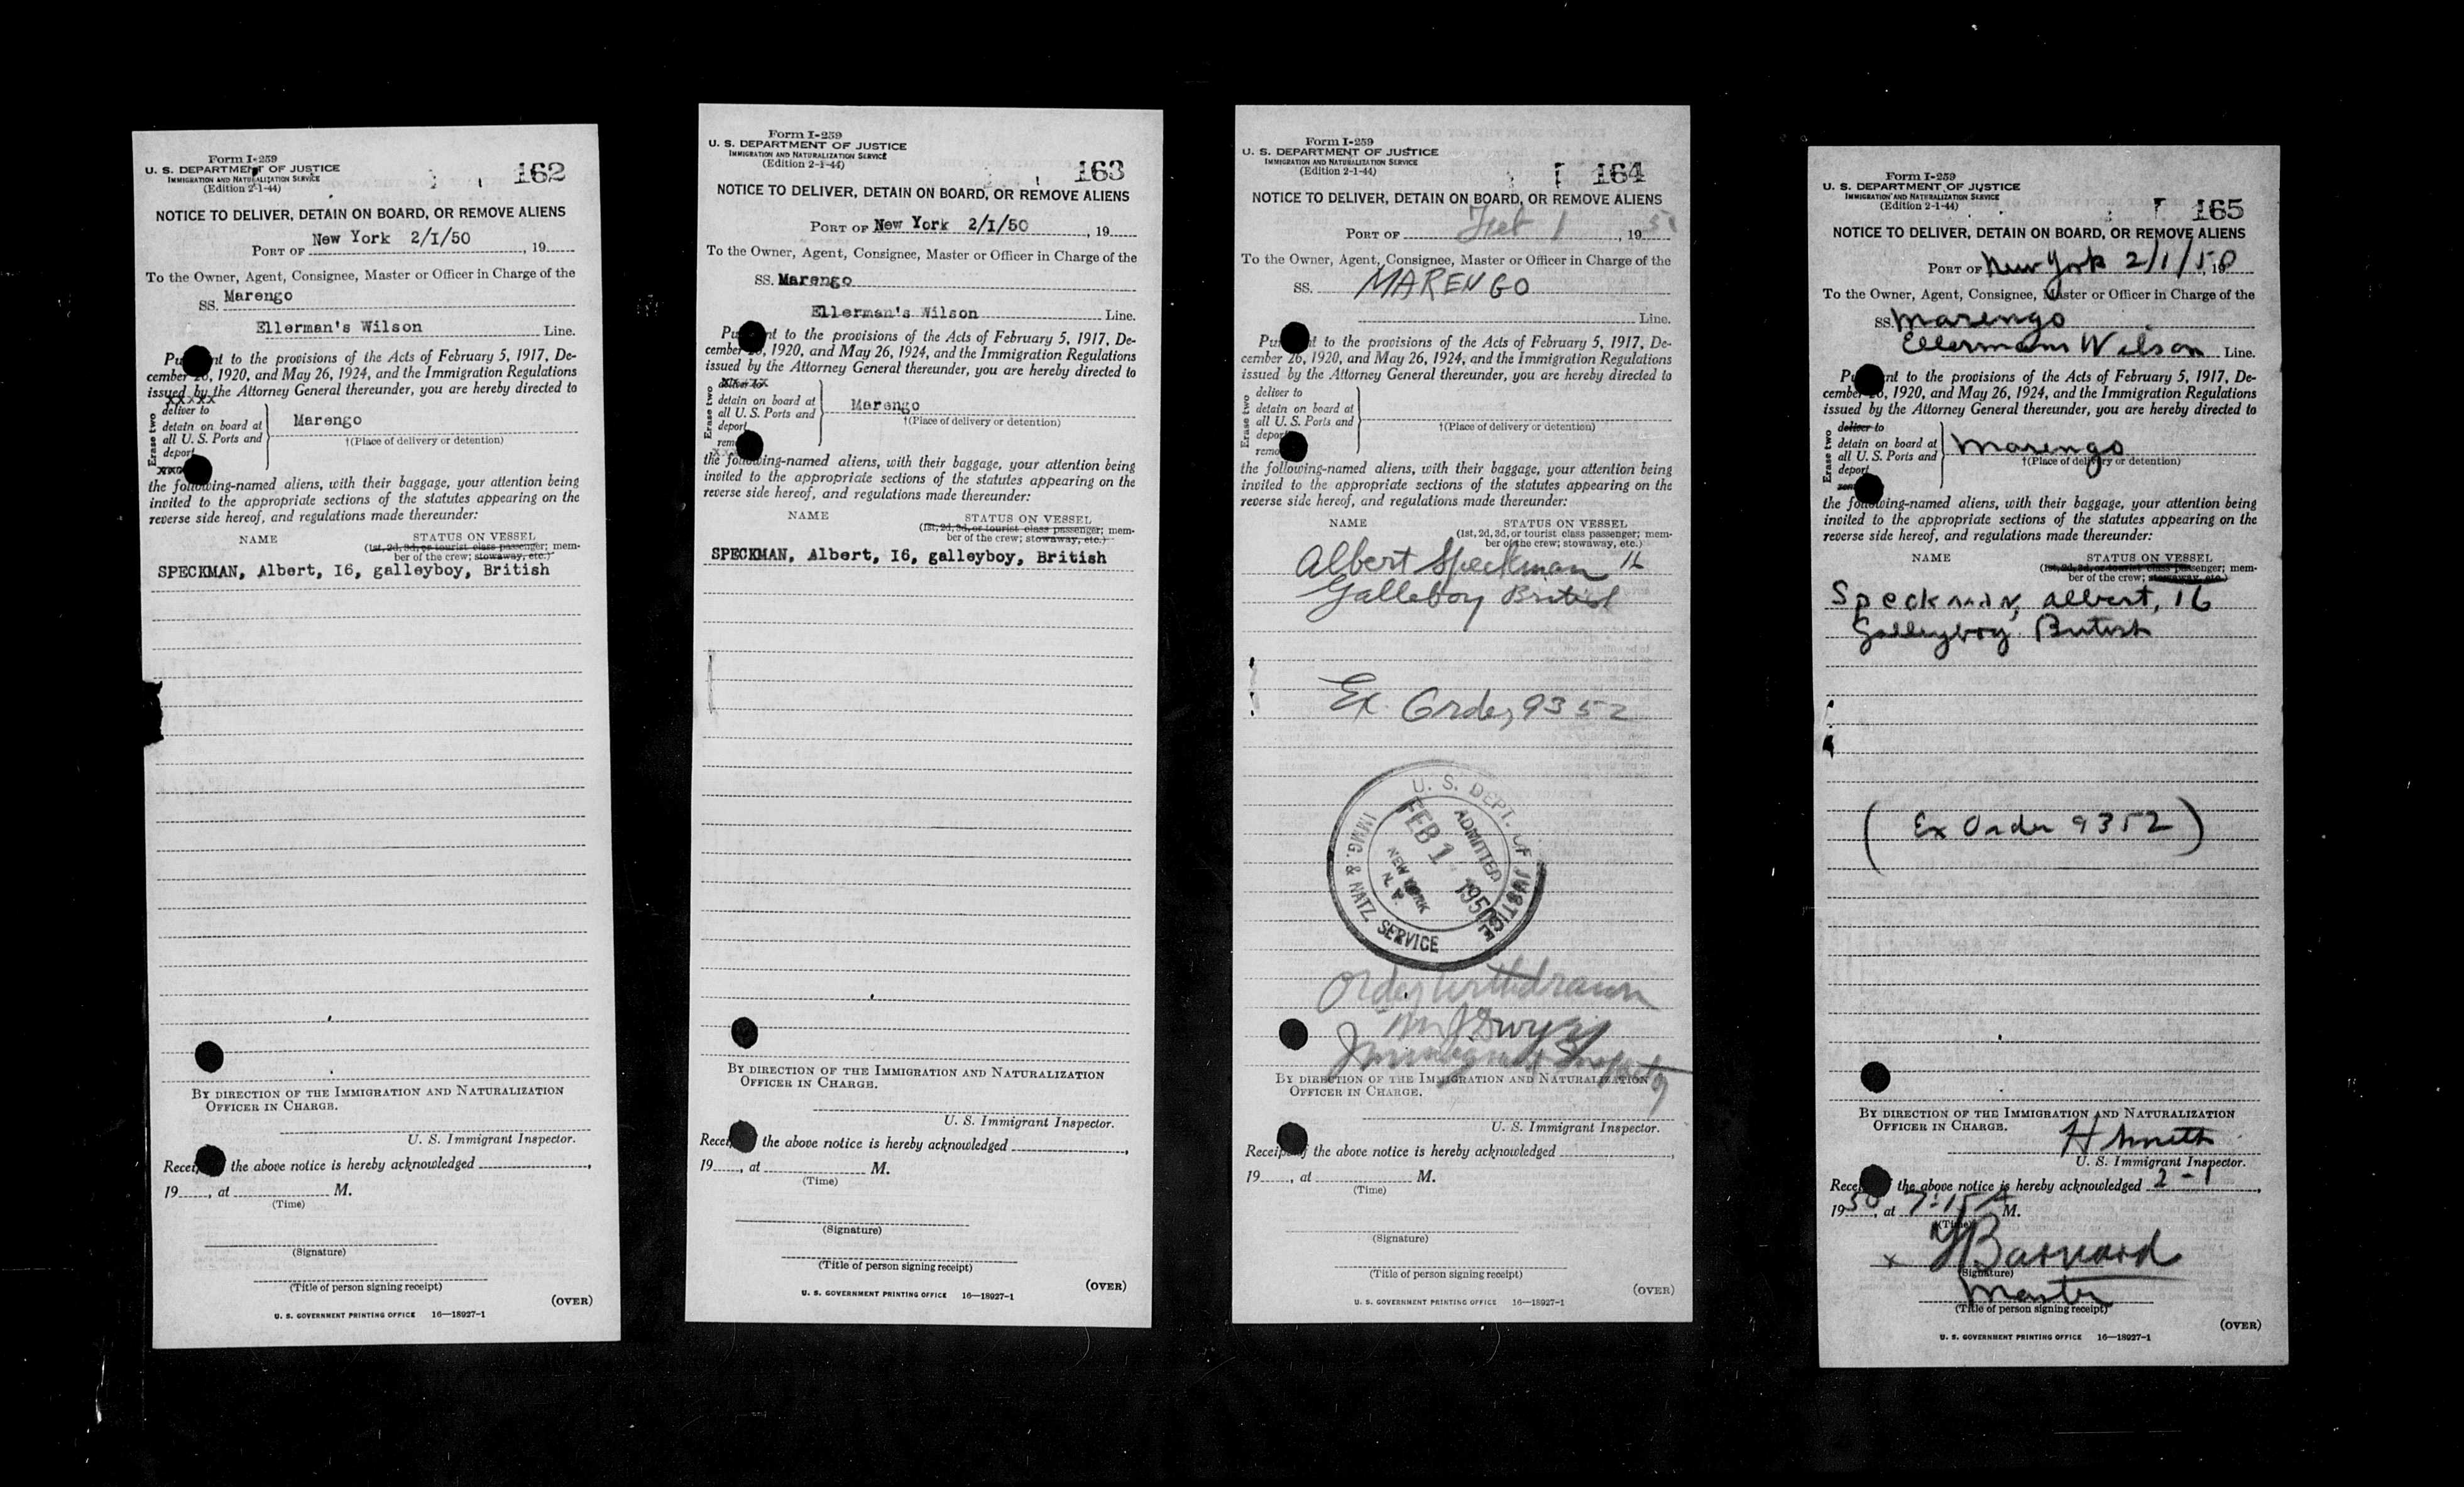 Form I-259
U. S. DEPARTMENT OF JUSTICE
IMMIGRATION AND NATURALIZATION SERVICE
(Edition 2-1-44)
162
NOTICE TO DELIVER, DETAIN ON BOARD, OR REMOVE ALIENS
PORT OF New York 2/I/50, 19
To the Owner, Agent, Consignee, Master or Officer in Charge of the
SS. Marengo
Ellerman's Wilson Line.
Pu nt to the provisions of the Acts of February 5, 1917, De-
cember 26, 1920, and May 26, 1924, and the Immigration Regulations
issued by the Attorney General thereunder, you are hereby directed to
xxxxx
Erase two
deliver to
detain on board at
all U. S. Ports and
deport
Marengo
†(Place of delivery or detention)
the following-named aliens, with their baggage, your attention being
invited to the appropriate sections of the statutes appearing on the
reverse side hereof, and regulations made thereunder:
NAME STATUS ON VESSEL
(1st, 2d, 3d, or tourist class passenger; mem-
ber of the crew; stowaway, etc.)
SPECKMAN, Albert, I6, galleyboy, British
BY DIRECTION OF THE IMMIGRATION AND NATURALIZATION
OFFICER IN CHARGE.
U. S. Immigrant Inspector.
Recei the above notice is hereby acknowledged ,
19 , at M.
(Time)
(Signature)
(Title of person signing receipt)
(OVER)
U. S. GOVERNMENT PRINTING OFFICE 16—18927-1
Form I-259
U. S. DEPARTMENT OF JUSTICE
IMMIGRATION AND NATURALIZATION SERVICE
(Edition 2-1-44)
163
NOTICE TO DELIVER, DETAIN ON BOARD, OR REMOVE ALIENS
PORT OF New York 2/I/50, 19
To the Owner, Agent, Consignee, Master or Officer in Charge of the
SS. Marengo
Ellerman's Wilson Line.
Pu nt to the provisions of the Acts of February 5, 1917, De-
cember 26, 1920, and May 26, 1924, and the Immigration Regulations
issued by the Attorney General thereunder, you are hereby directed to
Erase two
deliver to
detain on board at
all U. S. Ports and
deport
rem
Marengo
†(Place of delivery or detention)
the following-named aliens, with their baggage, your attention being
invited to the appropriate sections of the statutes appearing on the
reverse side hereof, and regulations made thereunder:
NAME STATUS ON VESSEL
(1st, 2d, 3d, or tourist class passenger; mem-
ber of the crew; stowaway, etc.)
SPECKMAN, Albert, I6, galleyboy, British
BY DIRECTION OF THE IMMIGRATION AND NATURALIZATION
OFFICER IN CHARGE.
U. S. Immigrant Inspector.
Recei the above notice is hereby acknowledged ,
19 , at M.
(Time)
(Signature)
(Title of person signing receipt)
(OVER)
U. S. GOVERNMENT PRINTING OFFICE 16—18927-1
Form I-259
U. S. DEPARTMENT OF JUSTICE
IMMIGRATION AND NATURALIZATION SERVICE
(Edition 2-1-44)
164
NOTICE TO DELIVER, DETAIN ON BOARD, OR REMOVE ALIENS
PORT OF Feb 1, 19
To the Owner, Agent, Consignee, Master or Officer in Charge of the
SS. MARENGO
Line.
Pu nt to the provisions of the Acts of February 5, 1917, De-
cember 26, 1920, and May 26, 1924, and the Immigration Regulations
issued by the Attorney General thereunder, you are hereby directed to
Erase two
deliver to
detain on board at
all U. S. Ports and
depor
remo
†(Place of delivery or detention)
the following-named aliens, with their baggage, your attention being
invited to the appropriate sections of the statutes appearing on the
reverse side hereof, and regulations made thereunder:
NAME STATUS ON VESSEL
(1st, 2d, 3d, or tourist class passenger; mem-
ber of the crew; stowaway, etc.)
Albert Speckman 16
Galleboy British
Ex Order 9352
U. S. DEPT. OF JUSTICE
IMMIG. & NATZ. SERVICE
ADMITTED
FEB 1 1950
NEW YORK
N. Y.
Order Withdrawn
M J Dwyer
Immigrant Inspector
BY DIRECTION OF THE IMMIGRATION AND NATURALIZATION
OFFICER IN CHARGE.
U. S. Immigrant Inspector.
Receipt of the above notice is hereby acknowledged ,
19 , at M.
(Time)
(Signature)
(Title of person signing receipt)
(OVER)
U. S. GOVERNMENT PRINTING OFFICE 16—18927-1
Form I-259
U. S. DEPARTMENT OF JUSTICE
IMMIGRATION AND NATURALIZATION SERVICE
(Edition 2-1-44)
165
NOTICE TO DELIVER, DETAIN ON BOARD, OR REMOVE ALIENS
PORT OF New York 2/1/50 19
To the Owner, Agent, Consignee, Master or Officer in Charge of the
SS. Marengo
Ellermans Wilson Line.
Pu nt to the provisions of the Acts of February 5, 1917, De-
cember 26, 1920, and May 26, 1924, and the Immigration Regulations
issued by the Attorney General thereunder, you are hereby directed to
Erase two
deliver to
detain on board at
all U. S. Ports and
deport
Marengo
†(Place of delivery or detention)
the following-named aliens, with their baggage, your attention being
invited to the appropriate sections of the statutes appearing on the
reverse side hereof, and regulations made thereunder:
NAME STATUS ON VESSEL
(1st, 2d, 3d, or tourist class passenger; mem-
ber of the crew; stowaway, etc.)
Speckman, Albert, 16
Galleyboy British
(Ex Order 9352)
BY DIRECTION OF THE IMMIGRATION AND NATURALIZATION
OFFICER IN CHARGE.
H Smith
U. S. Immigrant Inspector.
Recei the above notice is hereby acknowledged 2-1,
1950, at 7:15 A M.
(Time)
x Barnard
(Signature)
Master
(Title of person signing receipt)
(OVER)
U. S. GOVERNMENT PRINTING OFFICE 16—18927-1